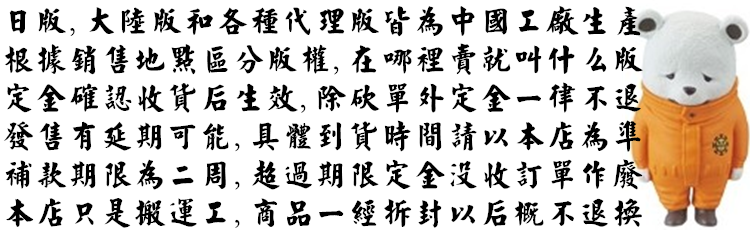 日版,大陸版和各種代理版皆為中國工廠生產
根據銷售地點區分版權,在哪裡賣就叫什么版
定金確認收貨后生效,除砍單外定金一律不退
發售有延期可能,具體到貨時間請以本店為準
補款期限為二周,超過期限定金没收訂單作廢
本店只是搬運工,商品一經拆封以后概不退換